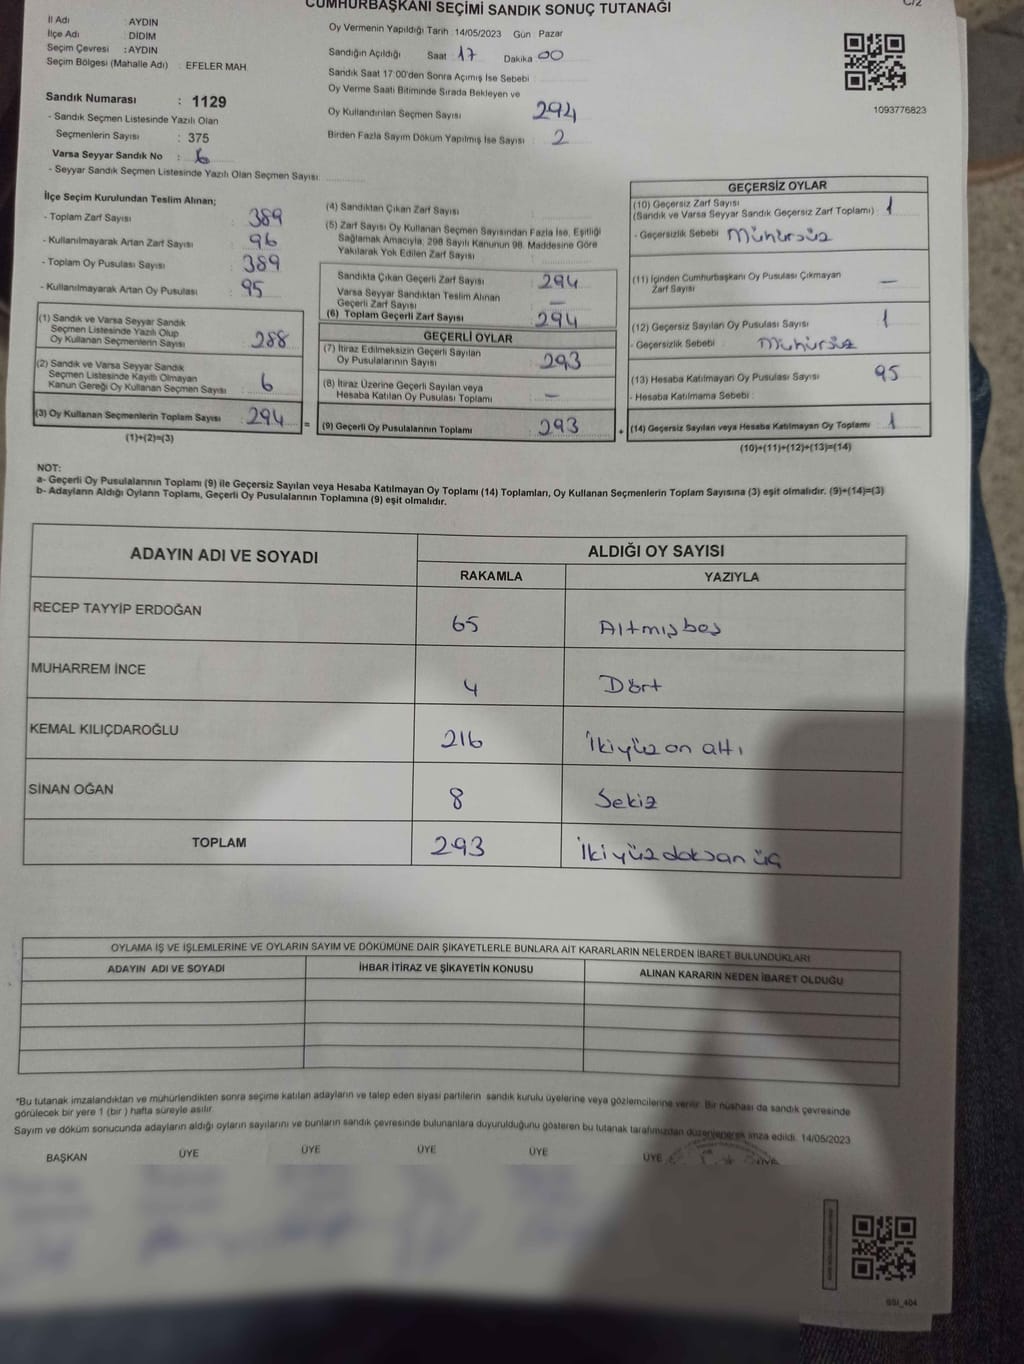 CUMHURBAŞKANI SEÇİMİ SANDIK SONUÇ TUTANAĞI
C/2
İl Adı : AYDIN
İlçe Adı : DİDİM
Seçim Çevresi : AYDIN
Seçim Bölgesi (Mahalle Adı) : EFELER MAH
Sandık Numarası : 1129
- Sandık Seçmen Listesinde Yazılı Olan
Seçmenlerin Sayısı : 375
Varsa Seyyar Sandık No : 6
- Seyyar Sandık Seçmen Listesinde Yazılı Olan Seçmen Sayısı:
Oy Vermenin Yapıldığı Tarih : 14/05/2023 Gün : Pazar
Sandığın Açıldığı Saat 17 Dakika 00
Sandık Saat 17:00'den Sonra Açımış İse Sebebi :
Oy Verme Saati Bitiminde Sırada Bekleyen ve
Oy Kullandırılan Seçmen Sayısı 294
Birden Fazla Sayım Döküm Yapılmış İse Sayısı : 2
1093776823
İlçe Seçim Kurulundan Teslim Alınan;
- Toplam Zarf Sayısı : 389
- Kullanılmayarak Artan Zarf Sayısı : 96
- Toplam Oy Pusulası Sayısı : 389
- Kullanılmayarak Artan Oy Pusulası : 95
(1) Sandık ve Varsa Seyyar Sandık
Seçmen Listesinde Yazılı Olup
Oy Kullanan Seçmenlerin Sayısı 288
(2) Sandık ve Varsa Seyyar Sandık
Seçmen Listesinde Kayıtlı Olmayan
Kanun Gereği Oy Kullanan Seçmen Sayısı 6
(3) Oy Kullanan Seçmenlerin Toplam Sayısı 294
(1)+(2)=(3)
(4) Sandıktan Çıkan Zarf Sayısı :
(5) Zarf Sayısı Oy Kullanan Seçmen Sayısından Fazla İse, Eşitliği
Sağlamak Amacıyla; 298 Sayılı Kanunun 98. Maddesine Göre
Yakılarak Yok Edilen Zarf Sayısı
Sandıkta Çıkan Geçerli Zarf Sayısı : 294
Varsa Seyyar Sandıktan Teslim Alınan
Geçerli Zarf Sayısı : —
(6) Toplam Geçerli Zarf Sayısı : 294
GEÇERLİ OYLAR
(7) İtiraz Edilmeksizin Geçerli Sayılan
Oy Pusulalarının Sayısı : 293
(8) İtiraz Üzerine Geçerli Sayılan veya
Hesaba Katılan Oy Pusulası Toplamı : —
= (9) Geçerli Oy Pusulalarının Toplamı : 293
GEÇERSİZ OYLAR
(10) Geçersiz Zarf Sayısı
(Sandık ve Varsa Seyyar Sandık Geçersiz Zarf Toplamı) : 1
- Geçersizlik Sebebi : Mühürsüz
(11) İçinden Cumhurbaşkanı Oy Pusulası Çıkmayan
Zarf Sayısı : —
(12) Geçersiz Sayılan Oy Pusulası Sayısı : 1
- Geçersizlik Sebebi : Mühürsüz
(13) Hesaba Katılmayan Oy Pusulası Sayısı : 95
- Hesaba Katılmama Sebebi :
+ (14) Geçersiz Sayılan veya Hesaba Katılmayan Oy Toplamı : 1
(10)+(11)+(12)+(13)=(14)
NOT:
a- Geçerli Oy Pusulalarının Toplamı (9) ile Geçersiz Sayılan veya Hesaba Katılmayan Oy Toplamı (14) Toplamları, Oy Kullanan Seçmenlerin Toplam Sayısına (3) eşit olmalıdır. (9)+(14)=(3)
b- Adayların Aldığı Oyların Toplamı, Geçerli Oy Pusulalarının Toplamına (9) eşit olmalıdır.
ADAYIN ADI VE SOYADI ALDIĞI OY SAYISI
RAKAMLA YAZIYLA
RECEP TAYYİP ERDOĞAN 65 Altmışbeş
MUHARREM İNCE 4 Dört
KEMAL KILIÇDAROĞLU 216 İkiyüz on altı
SİNAN OĞAN 8 Sekiz
TOPLAM 293 İkiyüz doksan üç
OYLAMA İŞ VE İŞLEMLERİNE VE OYLARIN SAYIM VE DÖKÜMÜNE DAİR ŞİKAYETLERLE BUNLARA AİT KARARLARIN NELERDEN İBARET BULUNDUKLARI
ADAYIN ADI VE SOYADI İHBAR İTİRAZ VE ŞİKAYETİN KONUSU ALINAN KARARIN NEDEN İBARET OLDUĞU
*Bu tutanak imzalandıktan ve mühürlendikten sonra seçime katılan adayların ve talep eden siyasi partilerin sandık kurulu üyelerine veya gözlemcilerine verilir. Bir nüshası da sandık çevresinde
görülecek bir yere 1 (bir ) hafta süreyle asılır.
Sayım ve döküm sonucunda adayların aldığı oyların sayılarını ve bunların sandık çevresinde bulunanlara duyurulduğunu gösteren bu tutanak tarafımızdan düzenlenerek imza edildi. 14/05/2023
BAŞKAN ÜYE ÜYE ÜYE ÜYE ÜYE
SSI_404